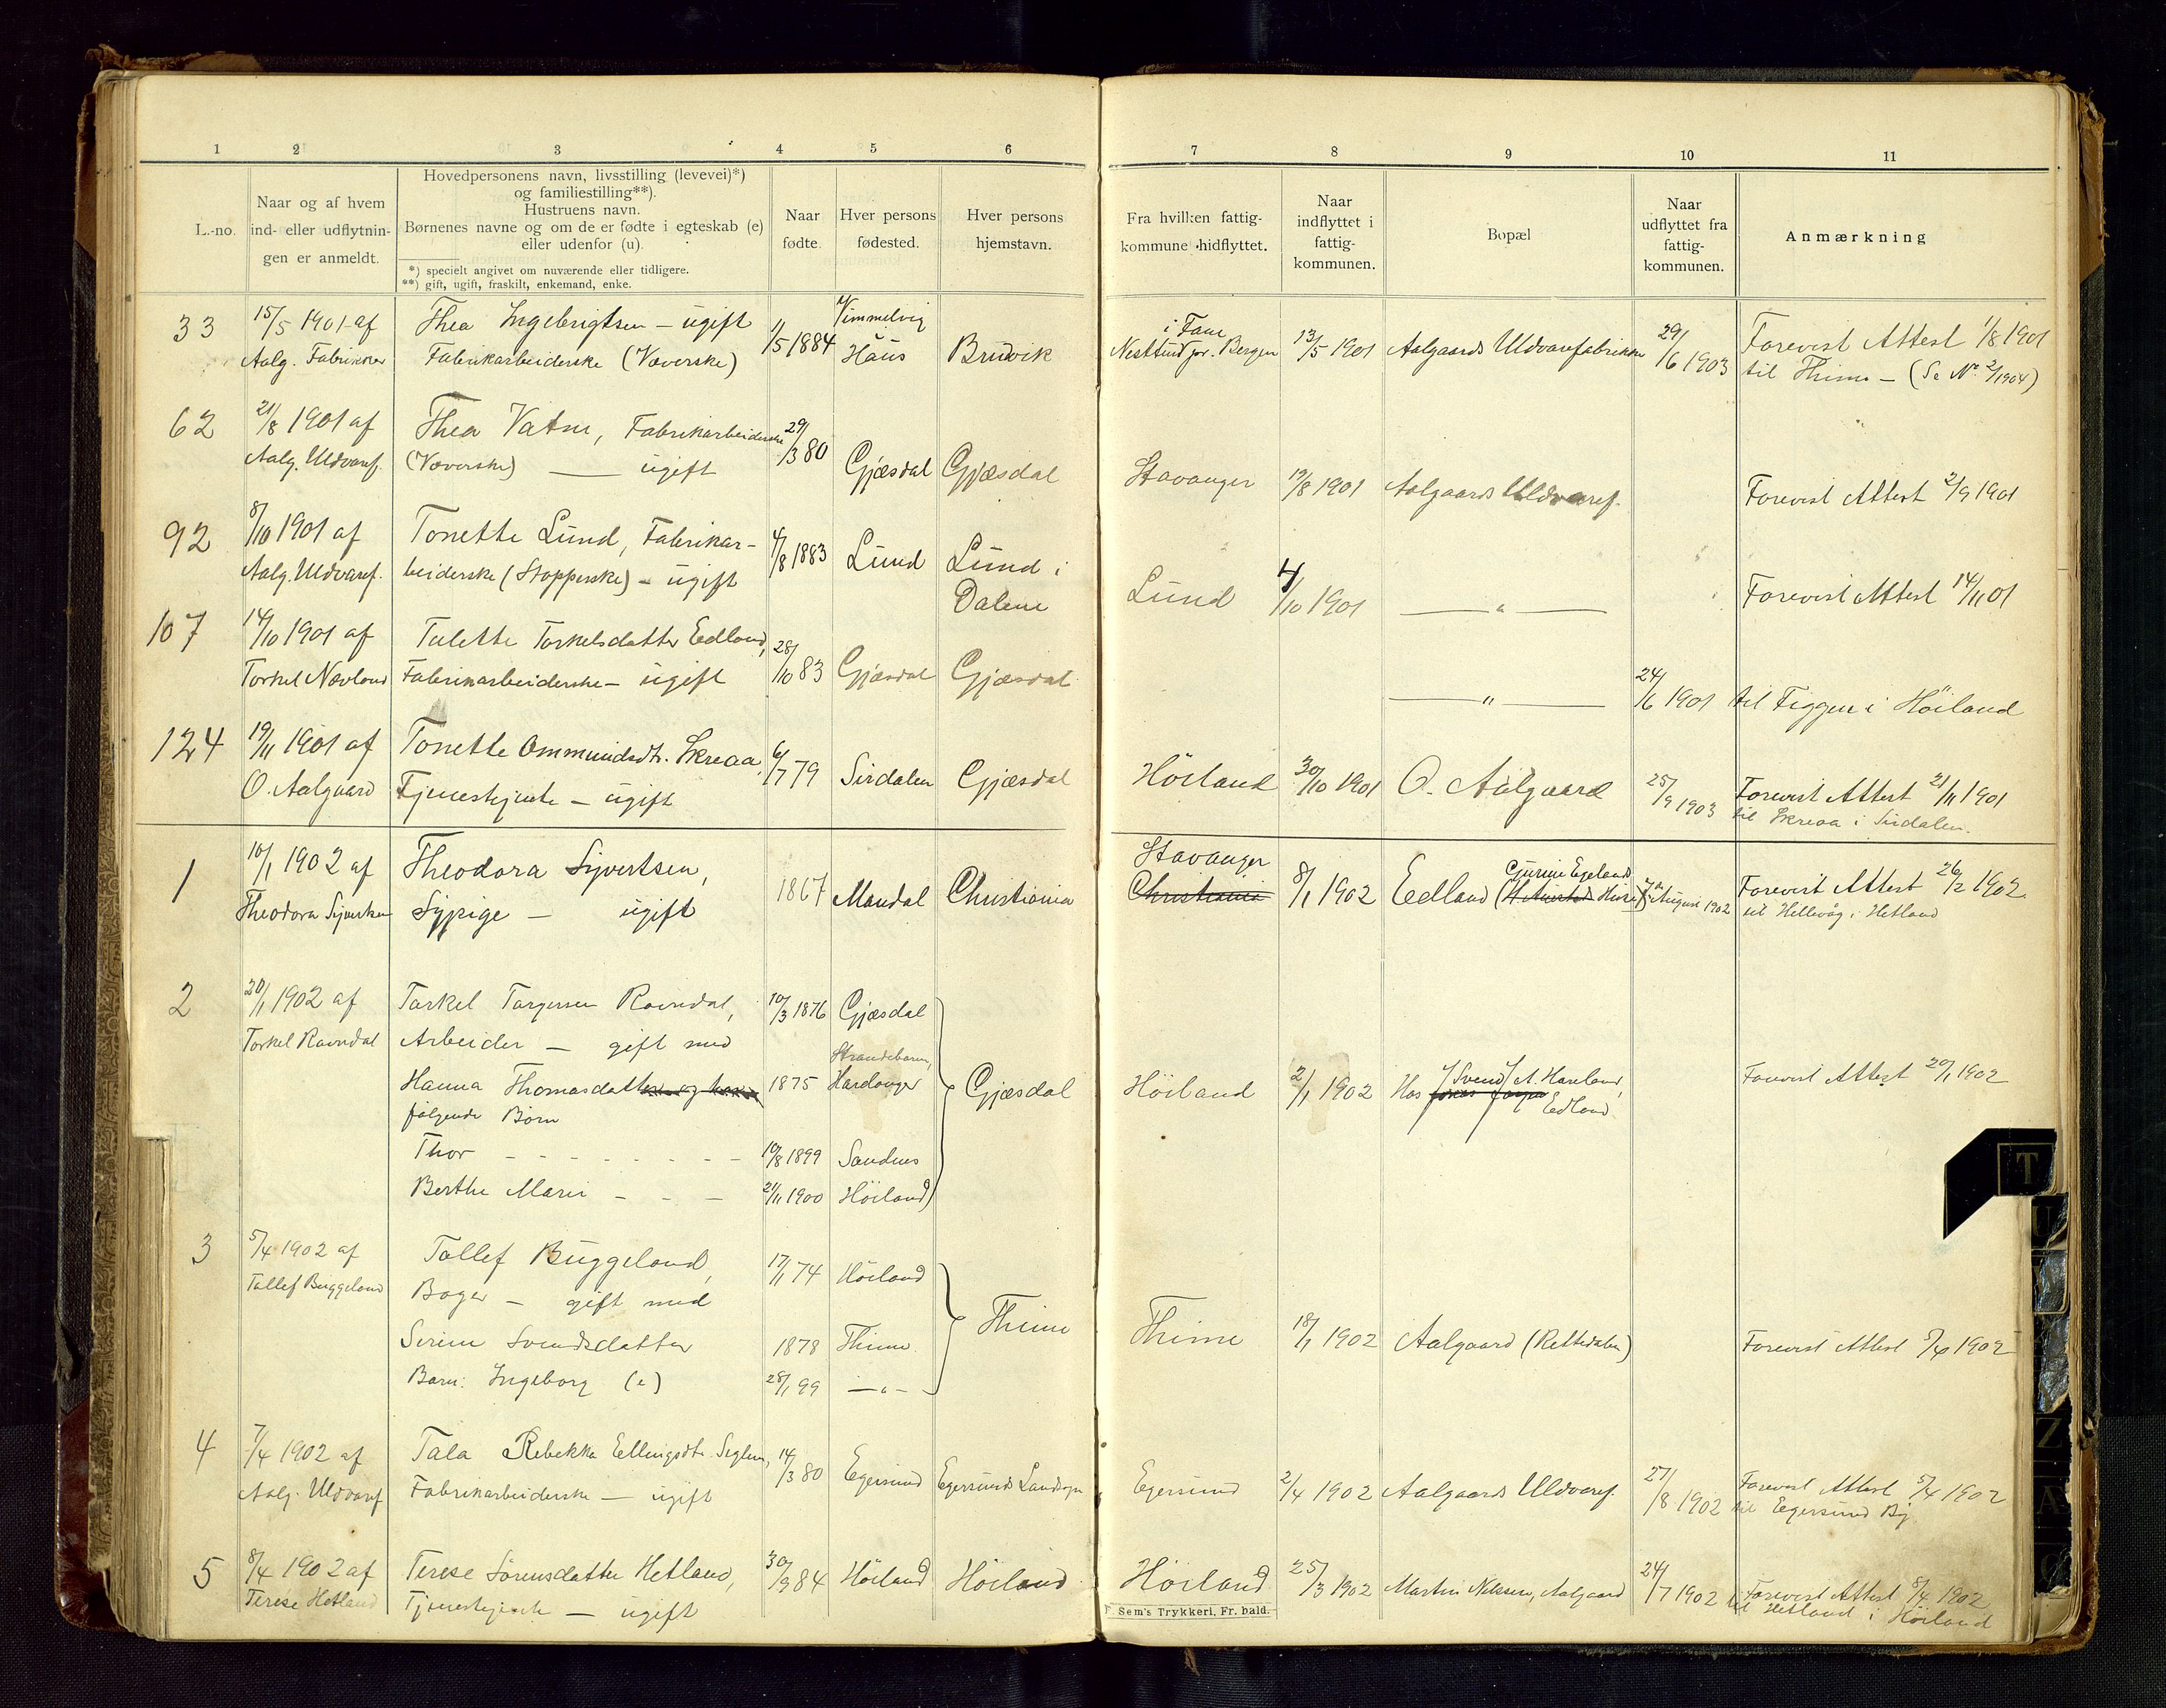 1 2 3 4 5 6 7 8 9 10 11
L.-no.
Naar og af hvem
ind- eller udflytnin-
gen er anmeldt.
Hovedpersonens navn, livsstilling (levevei)*)
og familiestilling**).
Hustruens navn.
Børnenes navne og om de er fødte i egteskab (e)
eller udenfor (u).
*) specielt angivet om nuværende eller tidligere.
**) gift, ugift, fraskilt, enkemand, enke.
Naar
fødte.
Hver persons
fødested.
Hver persons
hjemstavn.
Fra hvilken fattig-
kommune hidflyttet.
Naar
indflyttet i
fattig-
kommunen.
Bopæl
Naar
udflyttet fra
fattig-
kommunen.
Anmærkning
33
15/5 1901 af
Aalg. Fabrikker
Thea Ingebrigtsen — ugift
Fabrikarbeiderske (Væverske)
11/5 1884
Vimmelvig
Haus
Bruvik
i Fane
Nesttun pr. Bergen
13/5 1901
Aalgaards Uldvarefabrikker
29/6 1903
Forevist Attest 1/8 1901
til Thime — (Se No 2/1904)
62
21/8 1901 af
Aalg. Uldvaref.
Thea Vatne, Fabrikarbeiderske
(Væverske) — ugift
29/3 80
Gjæsdal
Gjæsdal
Stavanger
19/8 1901
Aalgaards Uldvaref.
Forevist Attest 2/9 1901
92
8/10 1901 af
Aalg. Uldvaref.
Tonette Lund, Fabrikar-
beiderske (Stopperske) — ugift
4/8 1883
Lund
Lund i
Dalene
Lund
4/10 1901
— " —
Forevist Attest 14/11 01
107
14/10 1901 af
Torkel Nævland
Talette Torkelsdatter Edland,
Fabrikarbeiderske — ugift
28/10 83
Gjæsdal
Gjæsdal
— " —
24/6 1901
til Figgen i Höiland
124
19/11 1901 af
O. Aalgaard
Tonette Ommundsdt. Skreaa
Tjenestejente — ugift
6/7 79
Sirdalen
Gjæsdal
Höiland
30/10 1901
O. Aalgaard
25/9 1903
Forevist Attest 21/11 1901
til Skreaa i Sirdalen.
1
10/1 1902 af
Theodora Syvertsen
Theodora Syvertsen,
Sypige — ugift
1867
Mandal
Christiania
Stavanger
Christiania
8/1 1902
Gurine Egeland
Edland
August 1902
Forevist Attest 26/2 1902.
til Hellevåg i Hetland
2
20/1 1902 af
Torkel Ravndal
Torkel Torgersen Ravndal,
Arbeider — gift med
Hanna Thomasdatter og har
følgende Børn
Thor - - - - - - - -
Berthe Marie - - -
10/3 1876
1875
10/8 1899
21/11 1900
Gjæsdal
Strandebarm,
Hardanger
Sandnes
Höiland
Gjæsdal
Höiland
2/1 1902
Hos
Svend A. Haveland,
Edland
Forevist Attest 20/1 1902
3
5/4 1902 af
Tallef Buggeland
Tallef Buggeland,
Bager — gift med
Serine Svendsdatter
Barn: Ingeborg (e)
17/1 74
1878
28/1 99
Höiland
Thime
— " —
Thime
Thime
18/1 1902
Aalgaard (Rettedalen)
Forevist Attest 5/4 1902
4
7/4 1902 af
Aalg. Uldvaref
Tala Rebekka Ellingsdt. Seglem,
Fabrikarbeiderske — ugift
14/3 80
Egersund
Egersunds Landsogn
Egersund
2/4 1902
Aalgaards Uldvaref.
27/8 1902
Forevist Attest 5/4 1902
til Egersund By
5
8/4 1902 af
Terese Hetland
Terese Sörensdatter Hetland,
Tjenestejente — ugift
30/9 84
Höiland
Höiland
Höiland
25/3 1902
Martin Nilssen, Aalgaard
24/7 1902
Forevist Attest 8/4 1902
til Hetland i Höiland
Sem's Trykkeri, Fr. hald.
T
U
Z